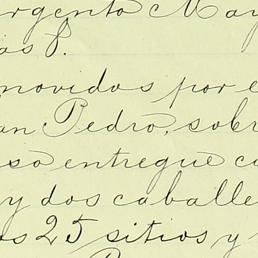 argento May
as P.
movidos por e
an Pedro, sobr
so entregue co
y dos caballe
os 25 sitios y